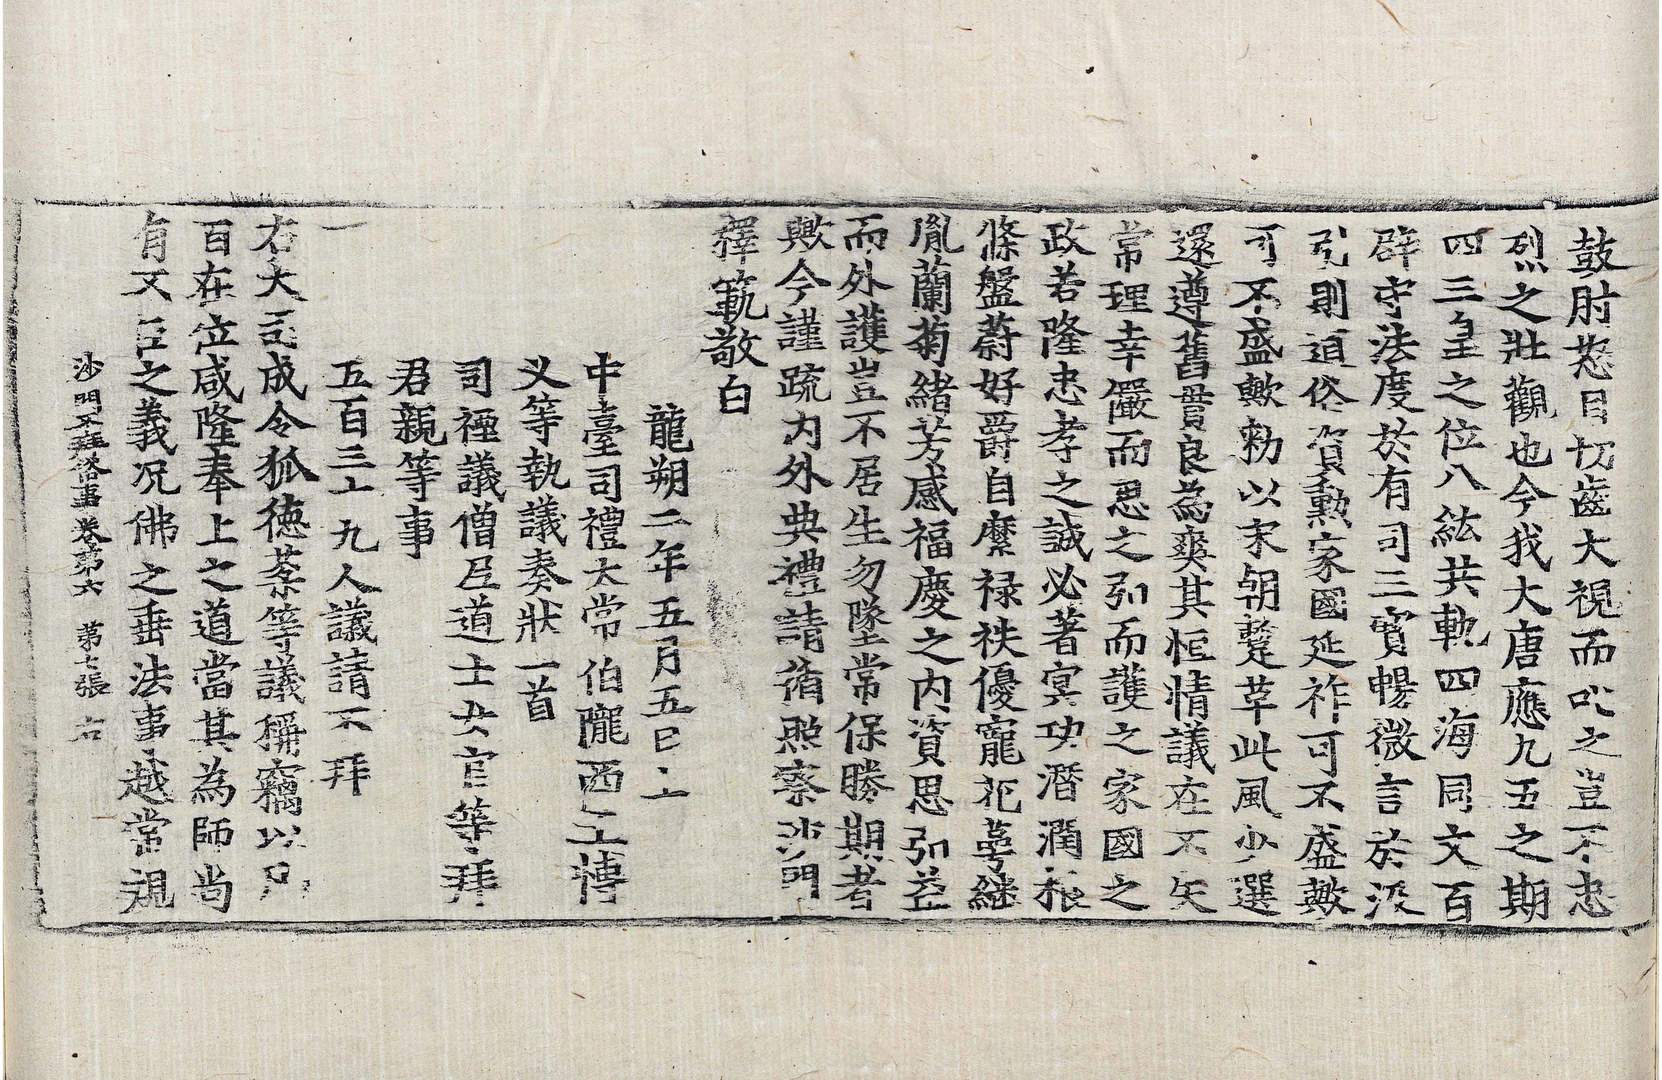 鼓肘怒目切齒大視而叱之豈不忠
烈之壯觀也今我大唐應九五之期
四三皇之位八紘共軌四海同文百
辟守法度於有司三寶暢微言於汲
引則道俗賀勳家國延祚可不盛歟
可不盛歟勑以末朝蹔草此風少選
還遵舊貫良為爽其恒情議在不矢
常理幸儼而思之弘而護之家國之
政若隆忠孝之誠必著冥功潛潤根
條盤蔚好爵自縻禄袟優寵花萼継
胤蘭菊緒芳感福慶之内資思弘益
而外護豈不居生勿墜常保勝期者
歟今謹疏内外典禮請循照察沙門
釋範敬白
龍朔二年五月五日上
中臺司禮太常伯隴西王博
乂等執議奏狀一首
司禮議僧尼道士女官等拜
君親等事
一
五百三十九人議請不拜
右大司成令狐德棻等議稱竊以凡
百在位咸隆奉上之道當其為師尚
有不臣之義况佛之垂法事越常規
沙門不拜俗事卷第六 第七張 右